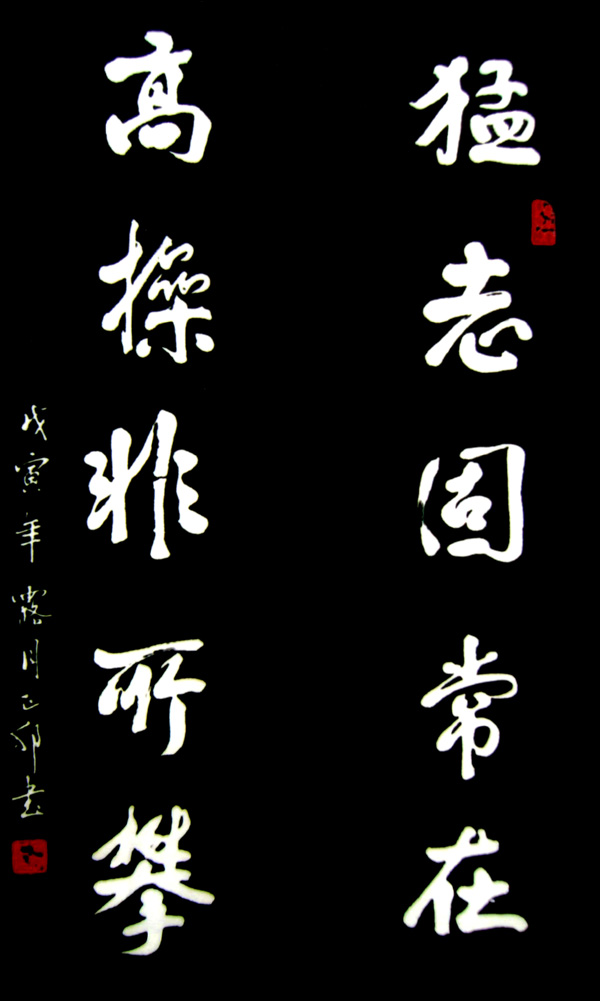 猛志固常在
高操非所攀
戊寅年露月正卯书